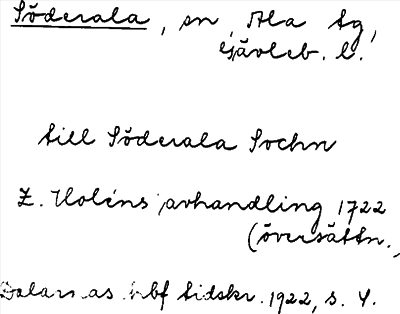 Söderala, sn, Ala tg,
Gävleb. l.
till Söderala Sochn
Z. Holéns avhandling 1722
(översättn.,
as hbf tidskr. 1922, s. 4.